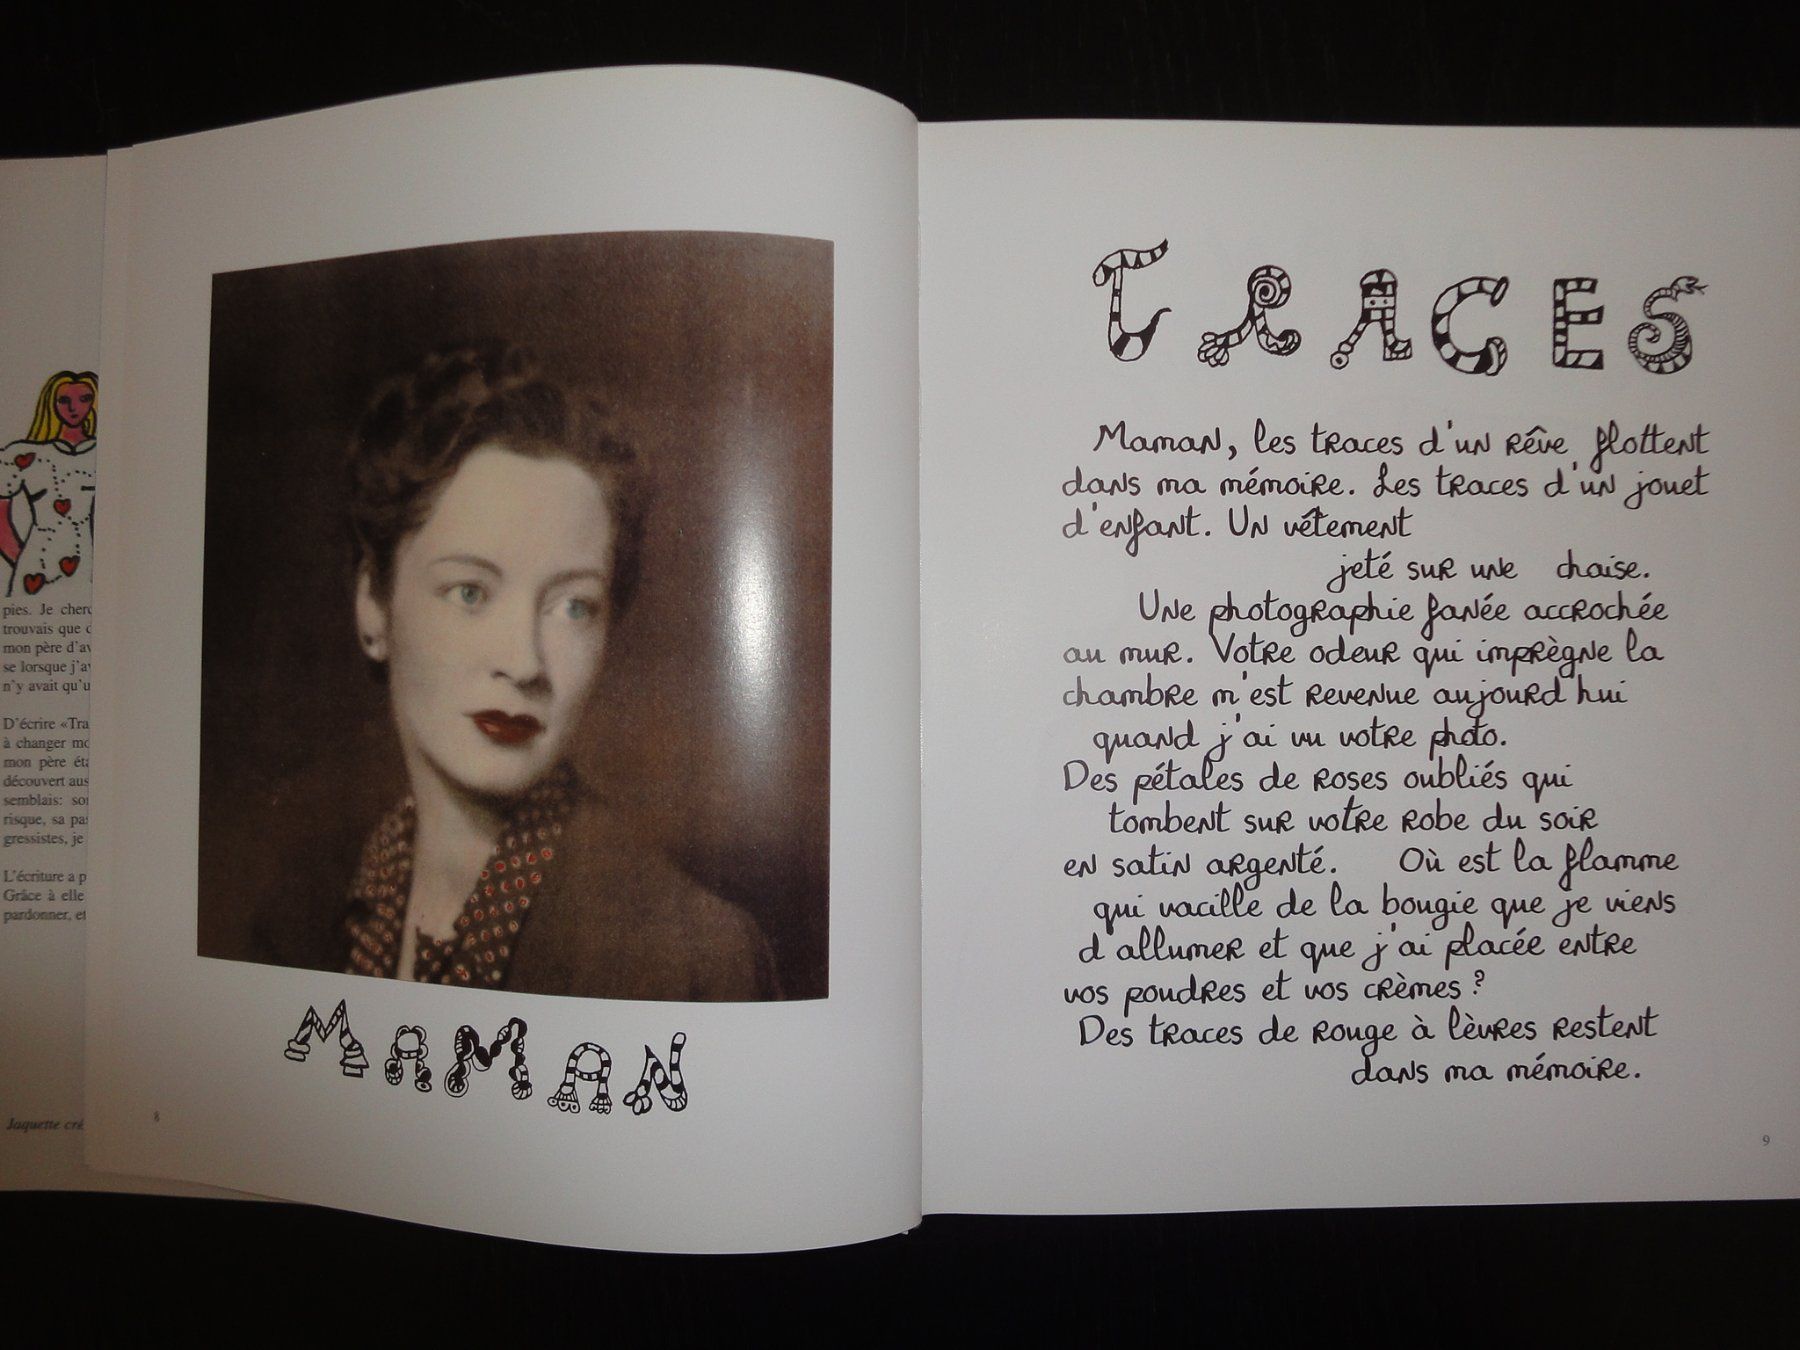 pies. Je
trouvais que
mon père
se lorsque
n'y avait
D'écrire
à changer
mon père
découvert
semblais:
risque, sa
gressistes, je
L'écriture a
Grâce à elle
pardonner, et
Jaquette
MAMAN
8
TRACES
Maman, les traces d'un rêve flottent
dans ma mémoire. Les traces d'un jouet
d'enfant. Un vêtement
jeté sur une chaise.
Une photographie fanée accrochée
au mur. Votre odeur qui imprègne la
chambre m'est revenue aujourd'hui
quand j'ai vu votre photo.
Des pétales de roses oubliés qui
tombent sur votre robe du soir
en satin argenté. Où est la flamme
qui vacille de la bougie que je viens
d'allumer et que j'ai placée entre
vos poudres et vos crèmes ?
Des traces de rouge à lèvres restent
dans ma mémoire.
9